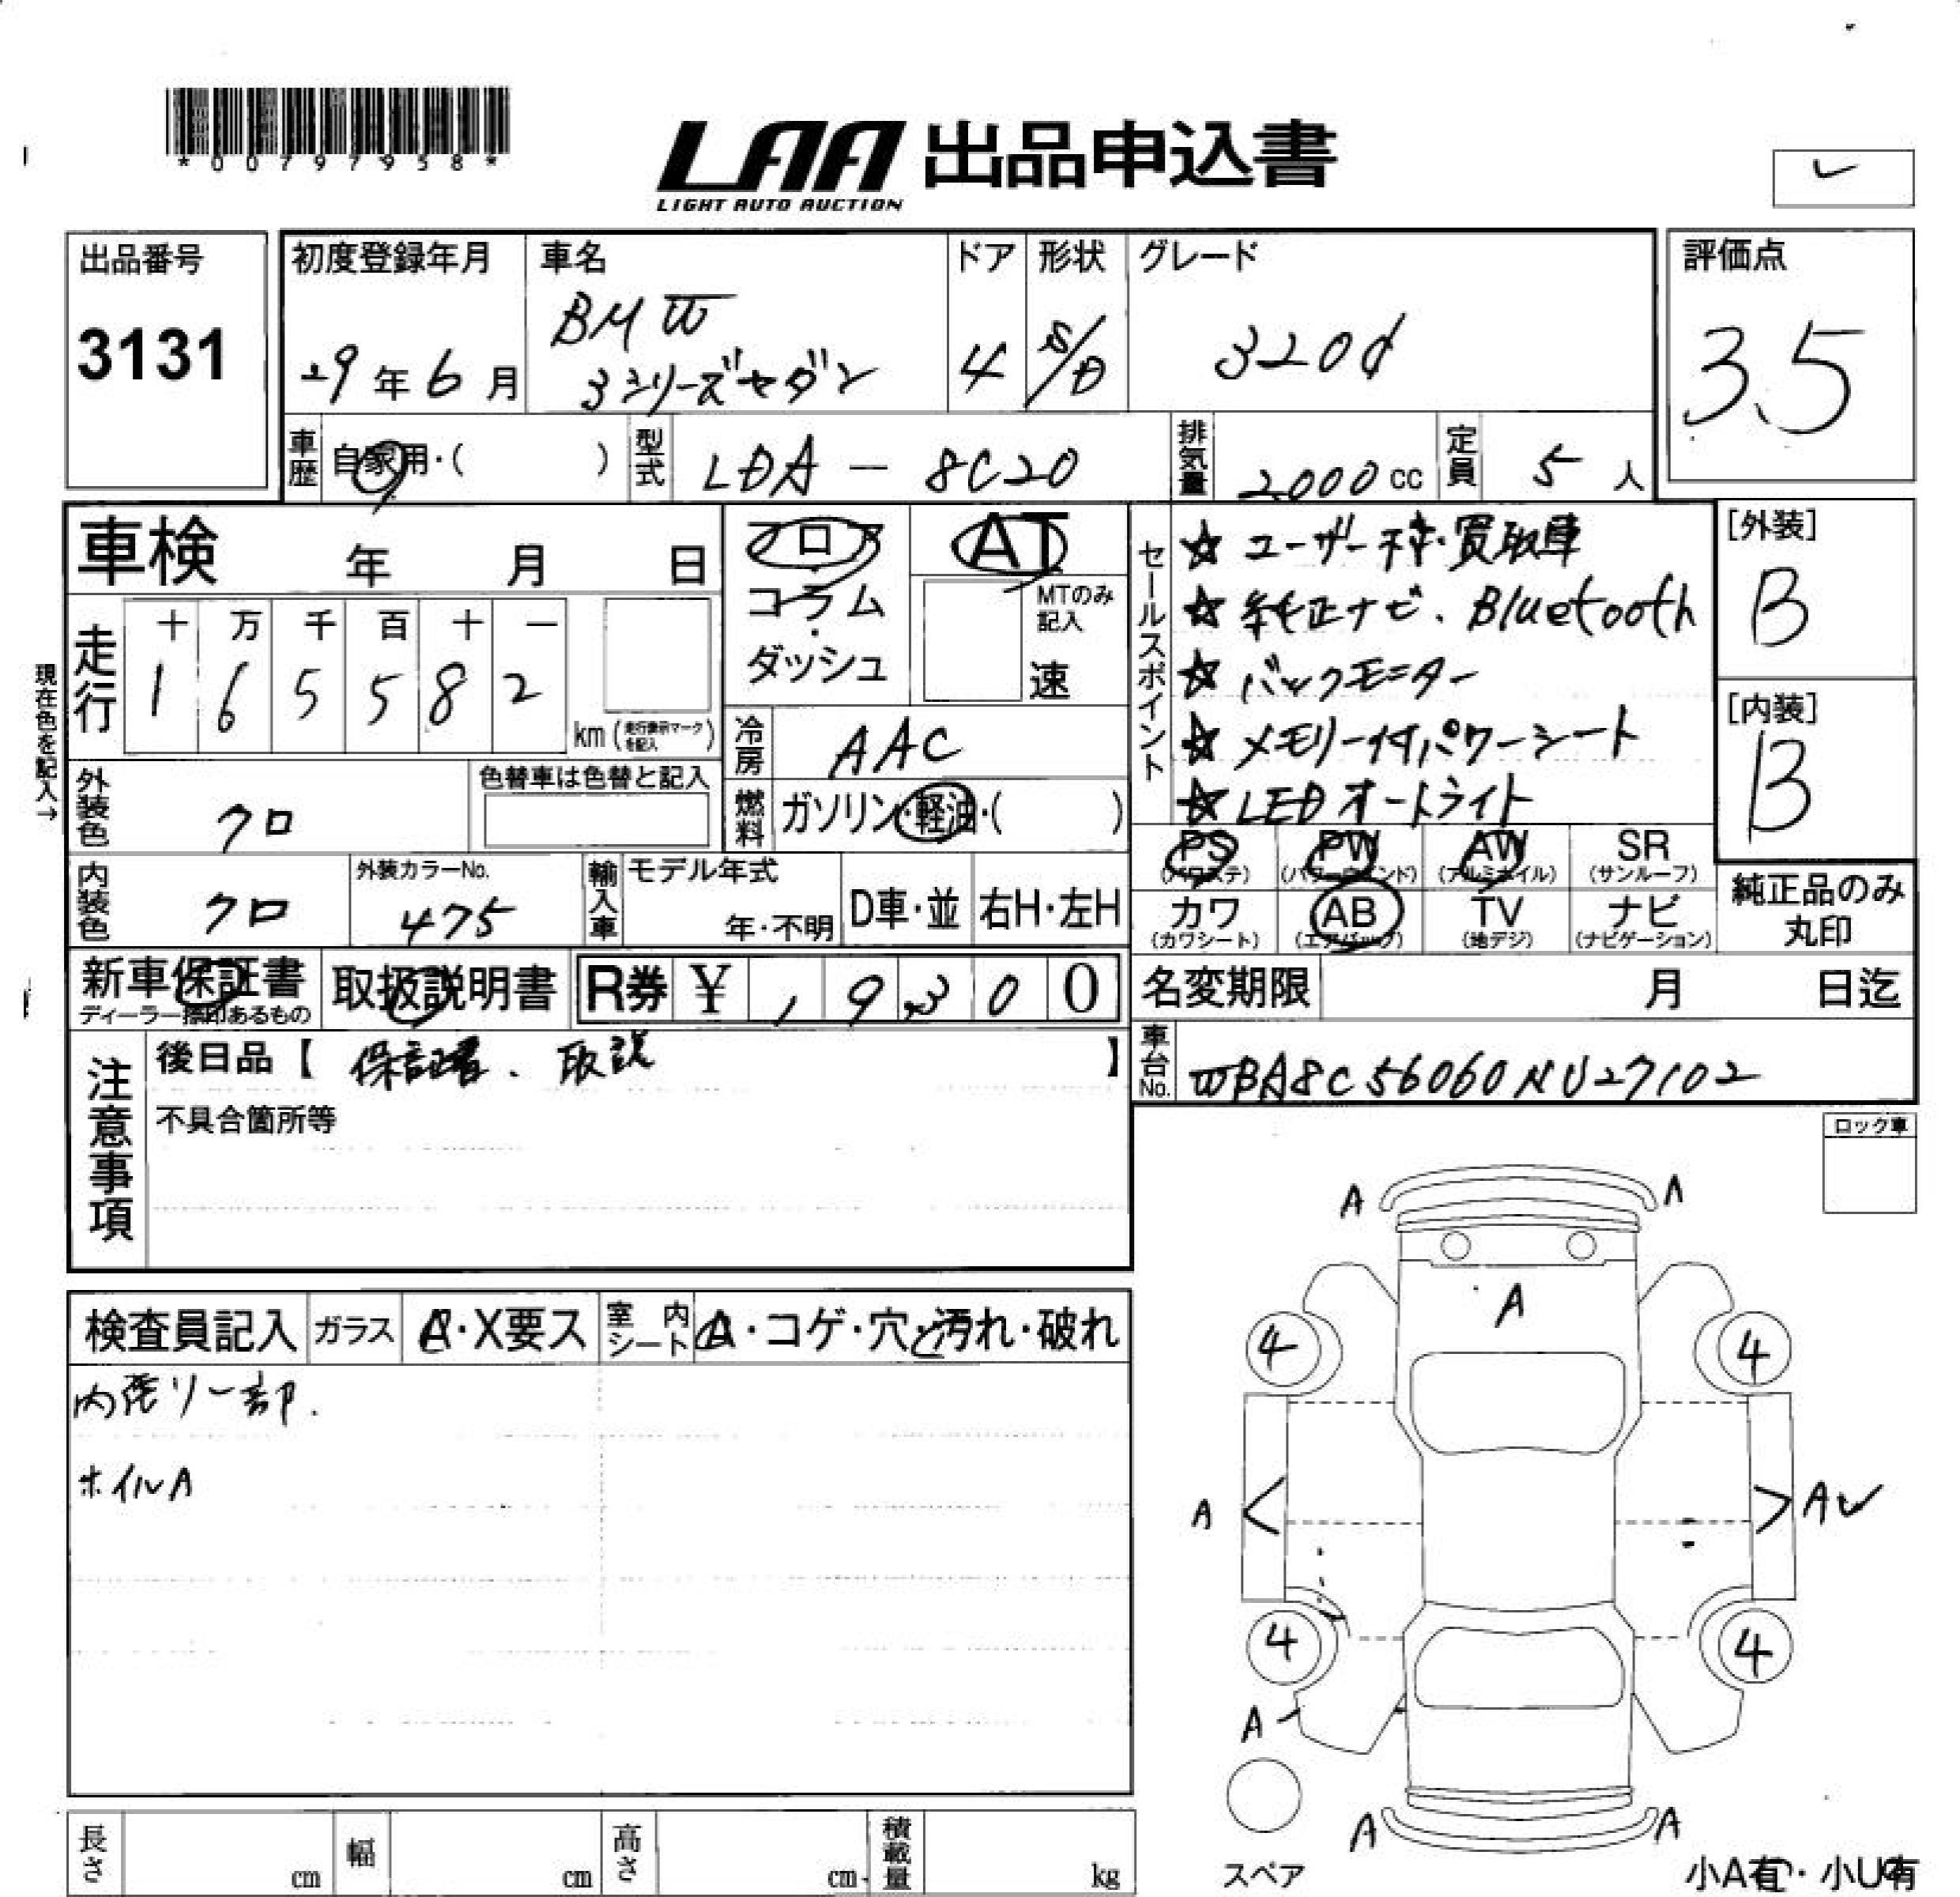 *00797958*
LAA 出品申込書
LIGHT AUTO AUCTION
出品番号
3131
初度登録年月
29年6月
車名
BMW
3シリーズセダン
ドア
4
形状
S/D
グレード
320d
評価点
3.5
車歴 自家用・( )
型式 LDA-8C20
排気量 2000cc
定員 5人
車検 年 月 日
フロア
コラム
・
ダッシュ
AT
MTのみ記入
速
走行
十 万 千 百 十 一
1 6 5 5 8 2
km(走行表示マークを記入)
現在色を記入→
外装色 クロ
色替車は色替と記入
冷房 AAC
燃料 ガソリン・軽油・( )
内装色 クロ
外装カラーNo.
475
輸入車
モデル年式
年・不明
D車・並
右H・左H
セールスポイント
☆ユーザー様買取車
☆純正ナビ、Bluetooth
☆バックモニター
☆メモリー付パワーシート
☆LEDオートライト
[外装]
B
[内装]
B
PS
(パワステ)
PW
(パワーウインド)
AW
(アルミホイル)
SR
(サンルーフ)
カワ
(カワシート)
AB
(エアバッグ)
TV
(地デジ)
ナビ
(ナビゲーション)
純正品のみ
丸印
新車保証書
ディーラー捺印あるもの
取扱説明書
R券 ¥ , 9,300
名変期限 月 日迄
車台No. WBA8C56060NU27102
注意事項
後日品【 保証書、取説 】
不具合箇所等
ロック車
検査員記入
ガラス A・X要ス
室内シート A・コゲ・穴・汚れ・破れ
内張リ一部.
ホイルA
A A
A
4 4
A A
4 4
A
A A
スペア
小A有・小U有
長さ cm
幅 cm
高さ cm
積載量 kg